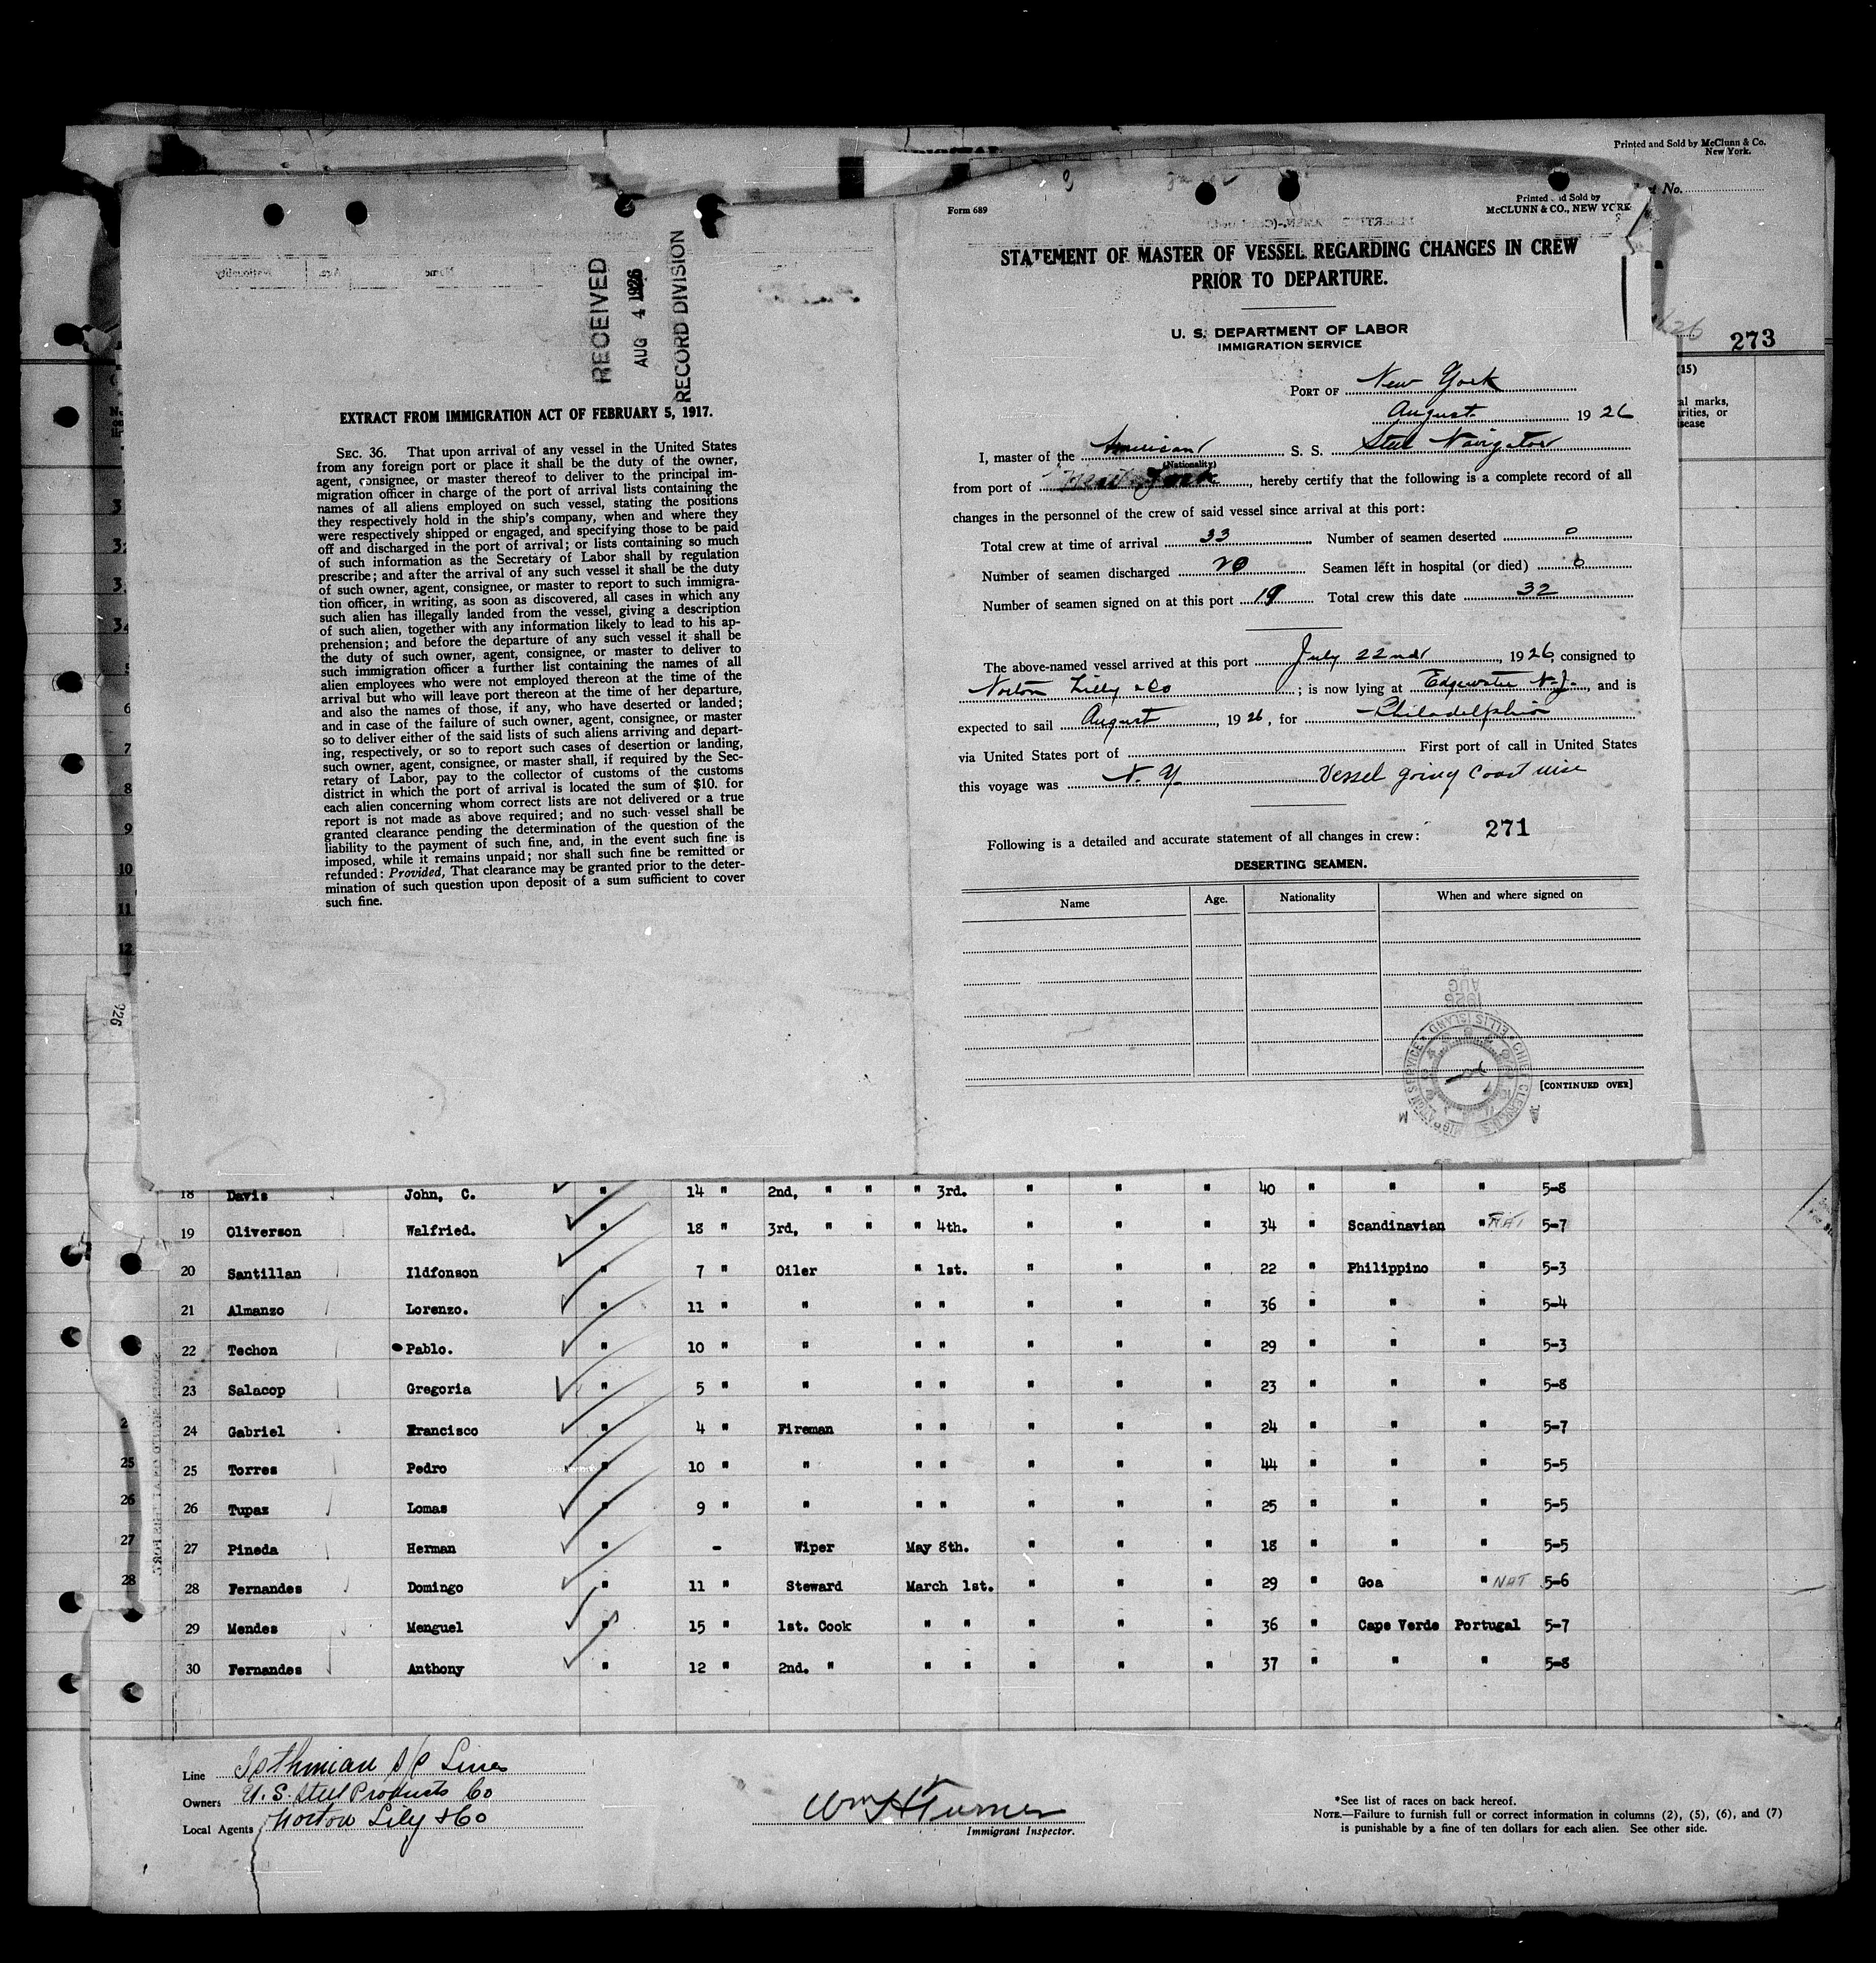 Printed and Sold by McClunn & Co.
New York.
No.
273
(15)
RECEIVED
AUG 4 1926
RECORD DIVISION
EXTRACT FROM IMMIGRATION ACT OF FEBRUARY 5, 1917.
SEC. 36. That upon arrival of any vessel in the United States
from any foreign port or place it shall be the duty of the owner,
agent, consignee, or master thereof to deliver to the principal im-
migration officer in charge of the port of arrival lists containing the
names of all aliens employed on such vessel, stating the positions
they respectively hold in the ship's company, when and where they
were respectively shipped or engaged, and specifying those to be paid
off and discharged in the port of arrival; or lists containing so much
of such information as the Secretary of Labor shall by regulation
prescribe; and after the arrival of any such vessel it shall be the duty
of such owner, agent, consignee, or master to report to such immigra-
tion officer, in writing, as soon as discovered, all cases in which any
such alien has illegally landed from the vessel, giving a description
of such alien, together with any information likely to lead to his ap-
prehension; and before the departure of any such vessel it shall be
the duty of such owner, agent, consignee, or master to deliver to
such immigration officer a further list containing the names of all
alien employees who were not employed thereon at the time of the
arrival but who will leave port thereon at the time of her departure,
and also the names of those, if any, who have deserted or landed;
and in case of the failure of such owner, agent, consignee, or master
so to deliver either of the said lists of such aliens arriving and depart-
ing, respectively, or so to report such cases of desertion or landing,
such owner, agent, consignee, or master shall, if required by the Sec-
retary of Labor, pay to the collector of customs of the customs
district in which the port of arrival is located the sum of $10. for
each alien concerning whom correct lists are not delivered or a true
report is not made as above required; and no such vessel shall be
granted clearance pending the determination of the question of the
liability to the payment of such fine, and, in the event such fine is
imposed, while it remains unpaid; nor shall such fine be remitted or
refunded: Provided, That clearance may be granted prior to the deter-
mination of such question upon deposit of a sum sufficient to cover
such fine.
Form 689
Printed and Sold by
McCLUNN & CO., NEW YORK
STATEMENT OF MASTER OF VESSEL REGARDING CHANGES IN CREW
PRIOR TO DEPARTURE.
U. S. DEPARTMENT OF LABOR
IMMIGRATION SERVICE
PORT OF New York
August 19 26
I, master of the American S. S. Steel Navigator
(Nationality)
from port of New York, hereby certify that the following is a complete record of all
changes in the personnel of the crew of said vessel since arrival at this port:
Total crew at time of arrival 33 Number of seamen deserted 0
Number of seamen discharged 20 Seamen left in hospital (or died) 0
Number of seamen signed on at this port 19 Total crew this date 32
The above-named vessel arrived at this port July 22nd, 1926, consigned to
Norton Lilly & Co; is now lying at Edgewater N.J., and is
expected to sail August, 1926, for Philadelphia
via United States port of First port of call in United States
this voyage was N. Y. Vessel going Coastwise
271
Following is a detailed and accurate statement of all changes in crew:
DESERTING SEAMEN.
Name Age. Nationality When and where signed on
AUG
1926
CHIEF CLERK U.S. IMMIGRATION SERVICE ELLIS ISLAND
[CONTINUED OVER]
18 Davis John, C. " 14 " 2nd, " " " 3rd. " " " 40 " " " 5-8
19 Oliverson Walfried. " 18 " 3rd, " " " 4th. " " " 34 " Scandinavian " NAT 5-7
20 Santillan Ildfonson " 7 " Oiler " 1st. " " " 22 " Philippino " 5-3
21 Almanzo Lorenzo. " 11 " " " " " " " 36 " " " 5-4
22 Techon Pablo. " 10 " " " " " " " 29 " " " 5-3
23 Salacop Gregoria " 5 " " " " " " " 23 " " " 5-8
24 Gabriel Francisco " 4 " Fireman " " " " " 24 " " " 5-7
25 Torres Pedro " 10 " " " " " " " 44 " " " 5-5
26 Tupaz Lomas " 9 " " " " " " " 25 " " " 5-5
27 Pineda Herman " - Wiper May 8th. " " " 18 " " " 5-5
28 Fernandes Domingo " 11 " Steward March 1st. " " " 29 " Goa " NAT 5-6
29 Mendes Menguel " 15 " 1st. Cook " " " " " 36 " Cape Verde Portugal 5-7
30 Fernandes Anthony " 12 " 2nd. " " " " " " 37 " " " 5-8
Line Isthmian S/S Lines
Owners U. S. Steel Products Co
Local Agents Norton Lily & Co
Wm H Turner
Immigrant Inspector.
*See list of races on back hereof.
NOTE.—Failure to furnish full or correct information in columns (2), (5), (6), and (7)
is punishable by a fine of ten dollars for each alien. See other side.